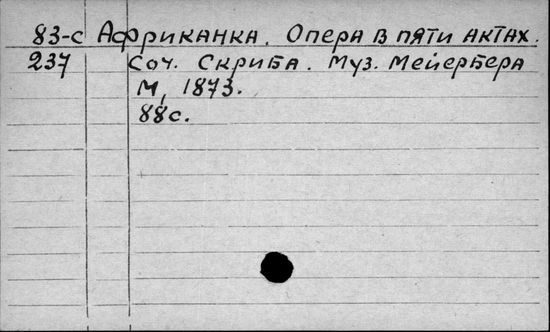 83-с Африканка. Опера в пяти актах.
237 Соч. Скриба. Муз. Мейербера
М, 1873.
88с.